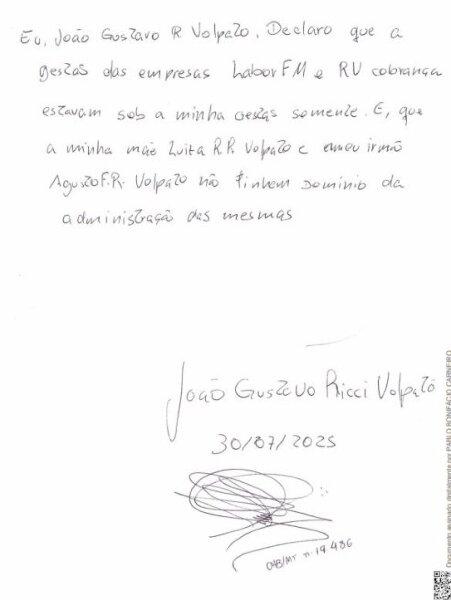 Eu, João Gustavo R Volpato, Declaro que a
gestão das empresas Labor FM e RV cobrança
estavam sob a minha gestão somente. E, que
a minha mãe Luiza R.R. Volpato e o meu irmão
Agusto F.R. Volpato não tinham Dominio da
administração das mesmas
João Gustavo Ricci Volpato
30/07/2025
OAB/MT n. 19.486
Documento assinado digitalmente por PABLO BONIFÁCIO CARNEIRO